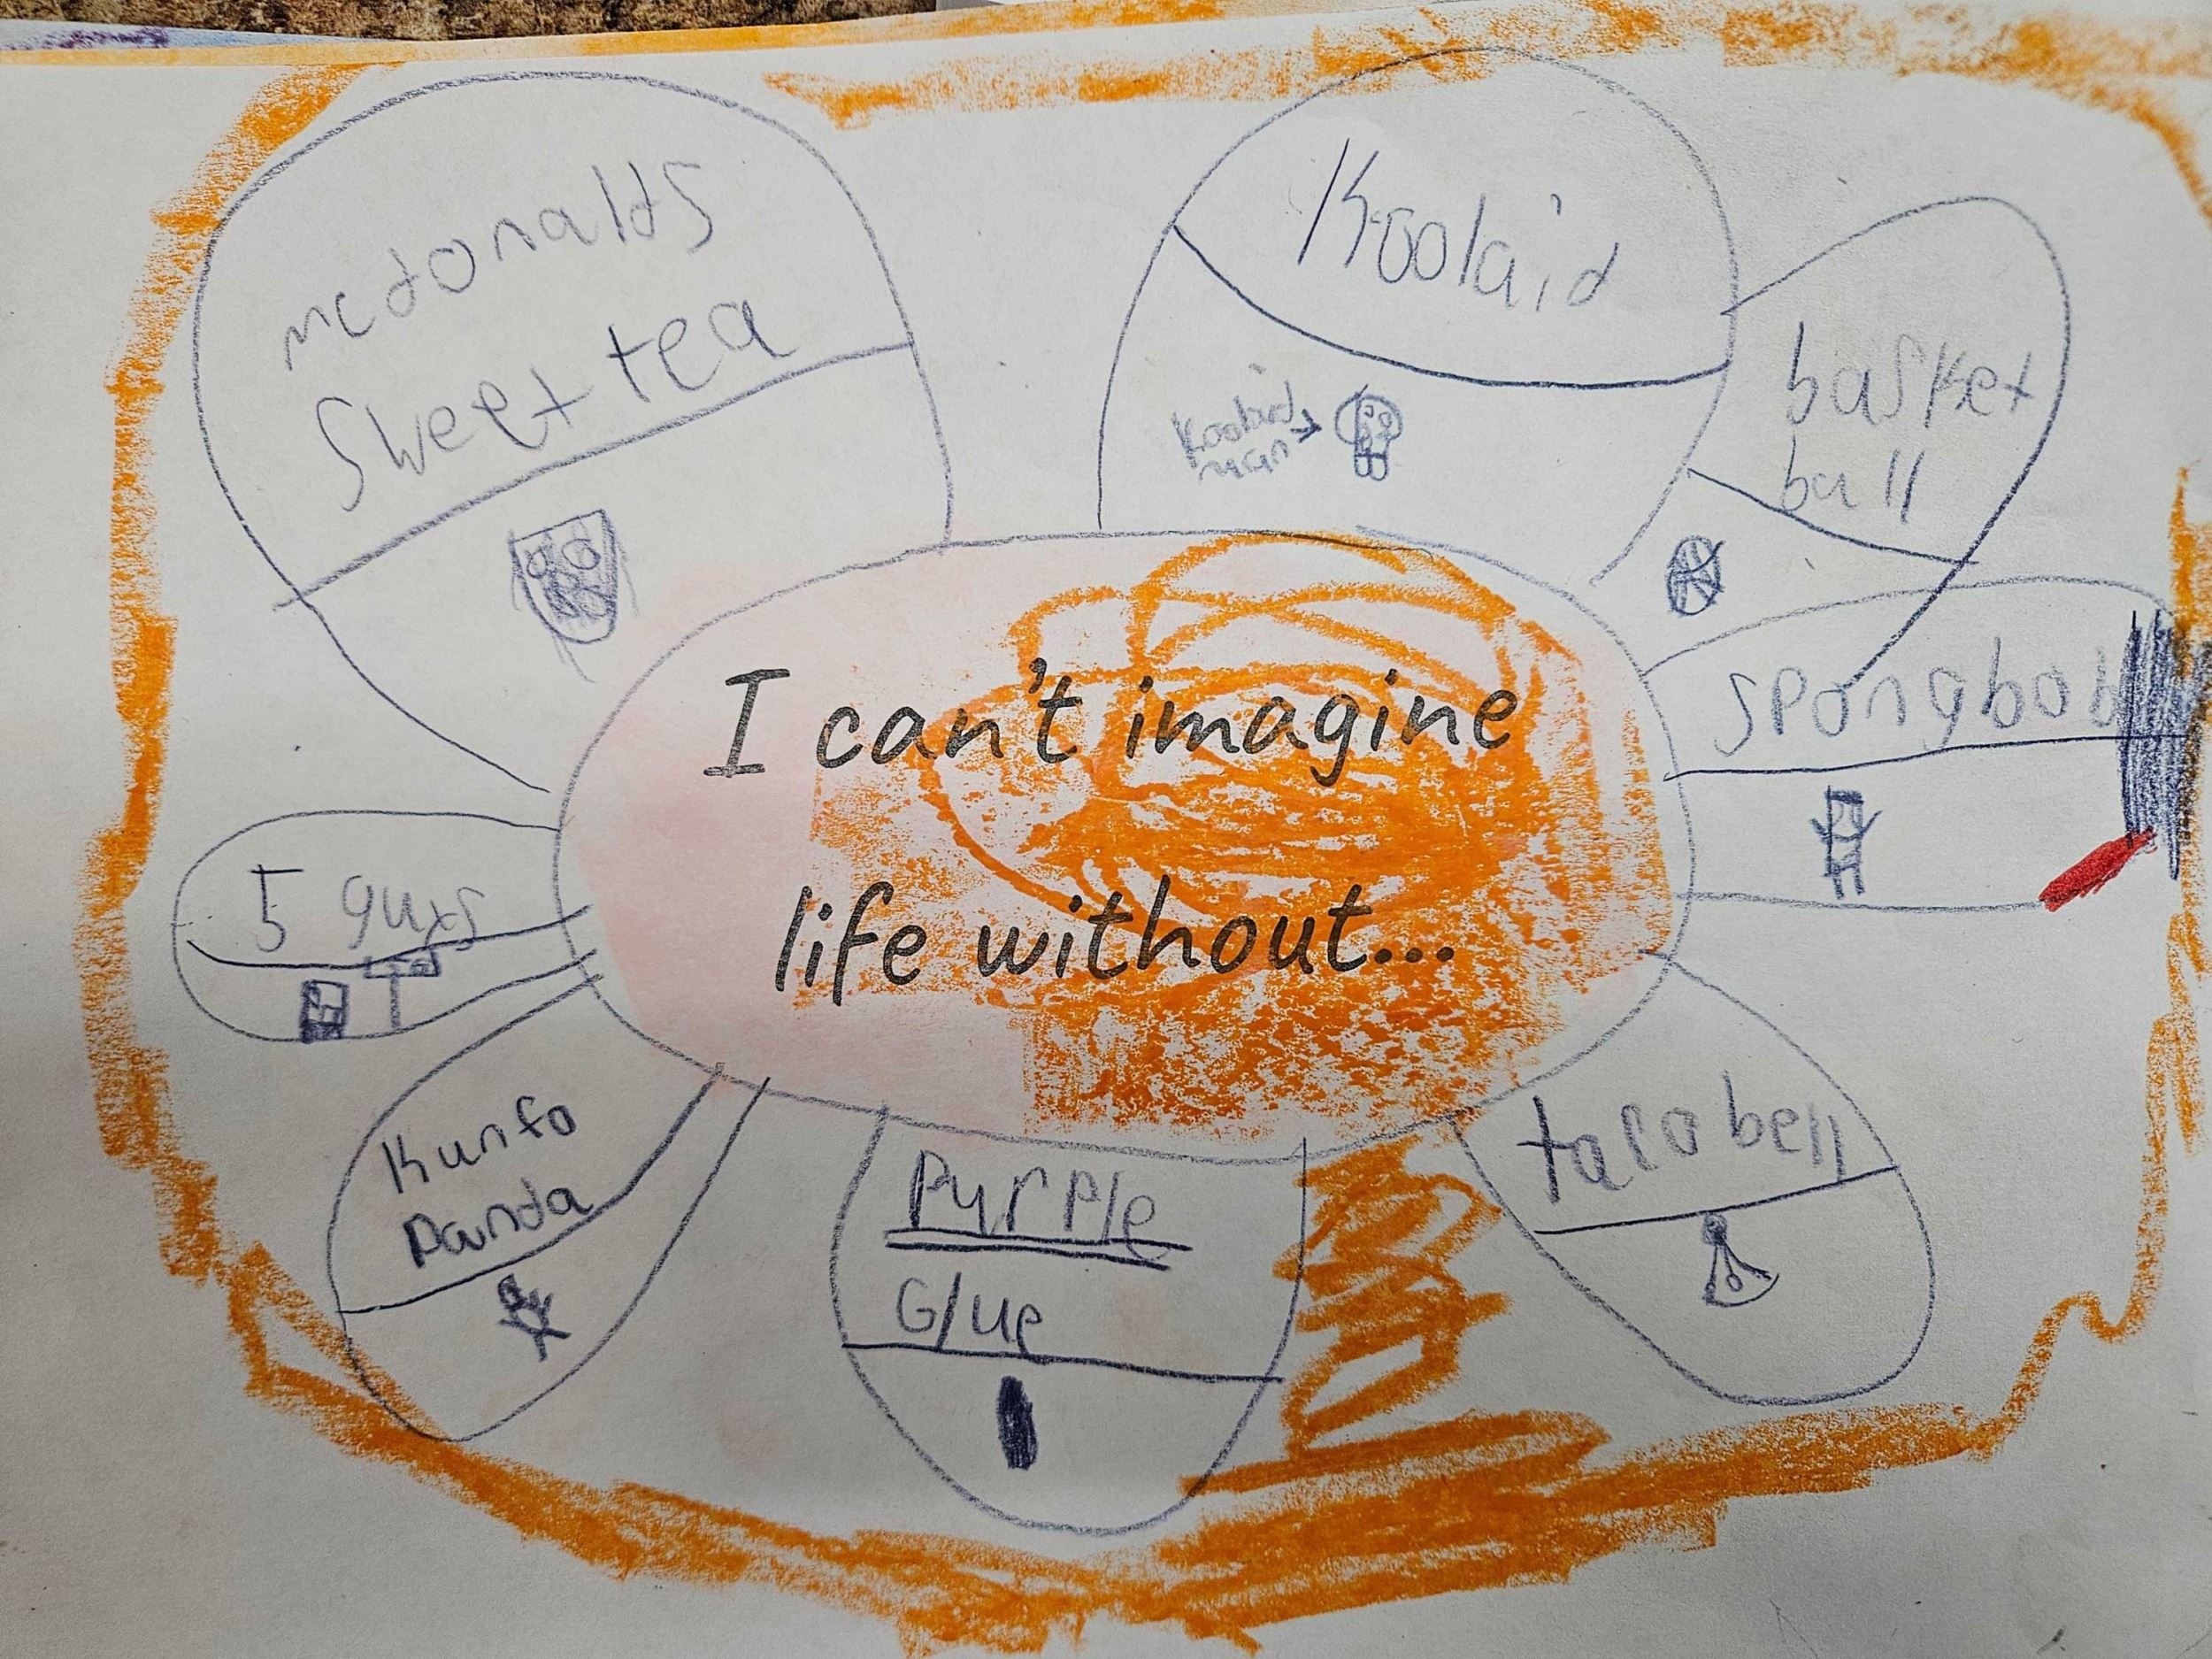 mcdonalds
sweet tea
Koolaid
Koolaid
man
basket
ball
spongbob
I can't imagine
life without...
5 guys
Kunfo
Panda
Purple
Glue
taco bell